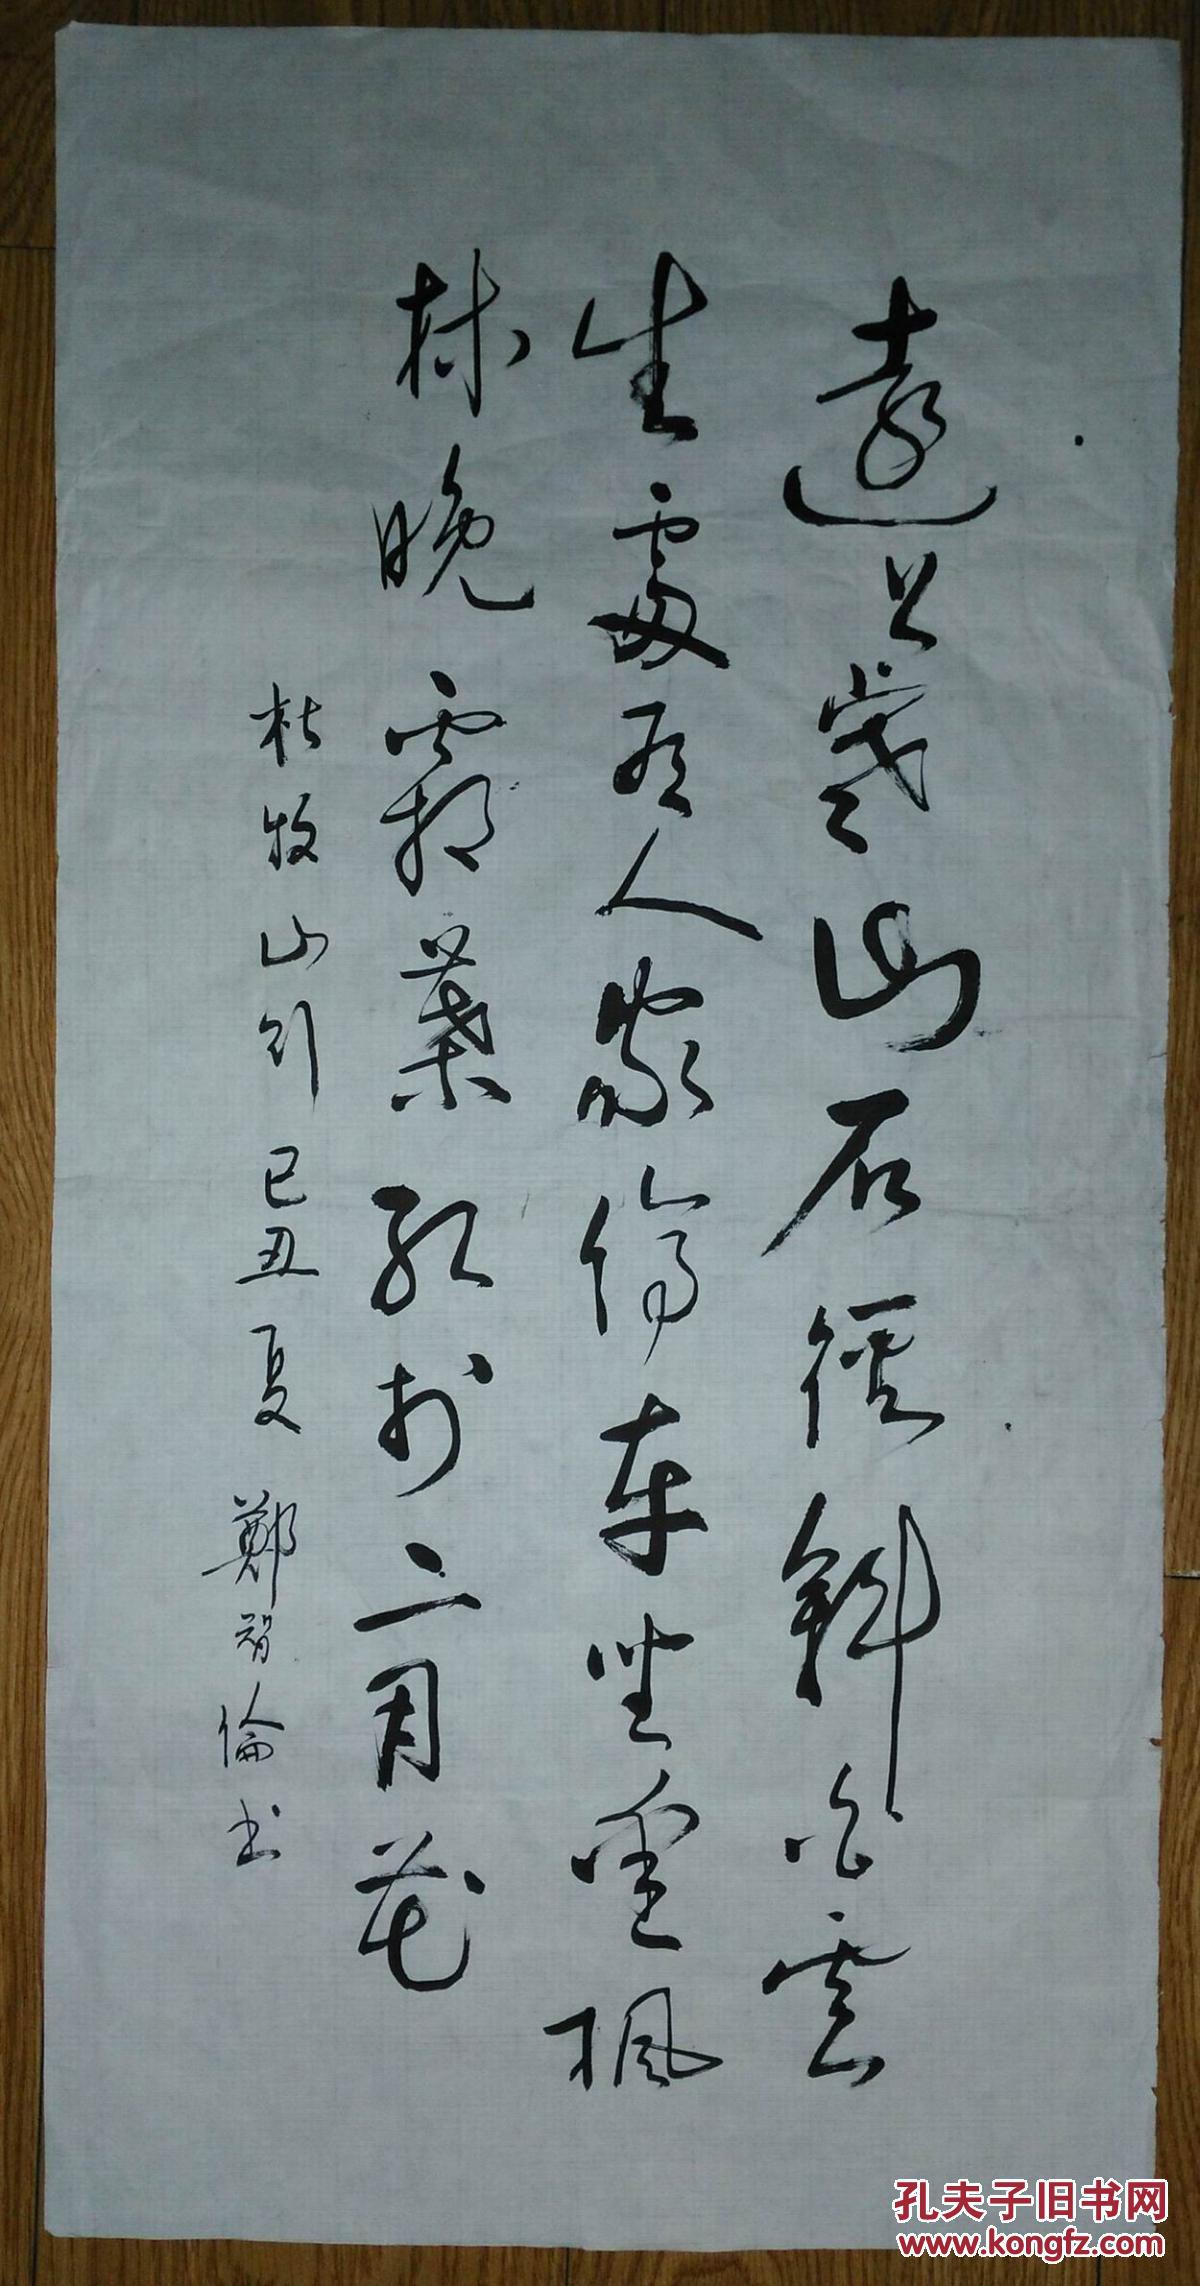 遠上寒山石徑斜白雲
生處有人家停車坐愛楓
林晚霜葉紅於二月花
杜牧山行 己丑夏 鄭智倫书
孔夫子旧书网
www.kongfz.com